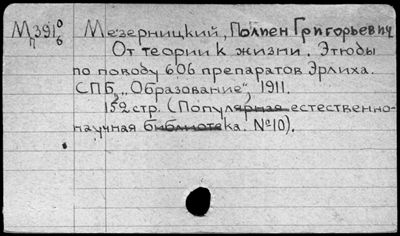 М391 0/6 Мезерницкий, Полиен Григорьевич
п
От теории к жизни. Этюды
по поводу 606 препаратов Эрлиха.
СПБ, „Образование“, 1911.
152 стр. (Популярная естественно-
научная библиотека. №10).